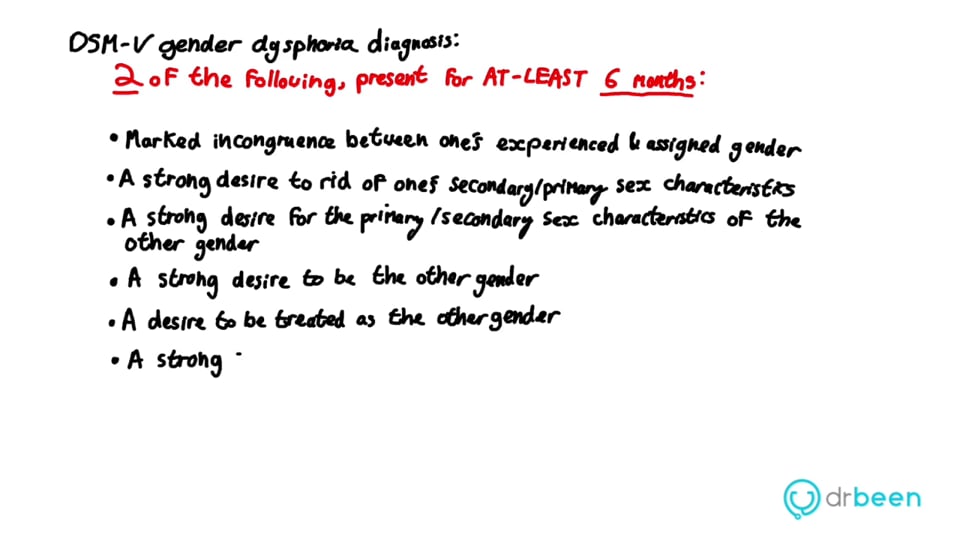 DSM-V gender dysphoria diagnosis:
2 of the following, present for AT-LEAST 6 months:
• Marked incongruence between one's experienced & assigned gender
• A strong desire to rid of one's secondary/primary sex characteristics
• A strong desire for the primary/secondary sex characteristics of the
other gender
• A strong desire to be the other gender
• A desire to be treated as the other gender
• A strong
drbeen